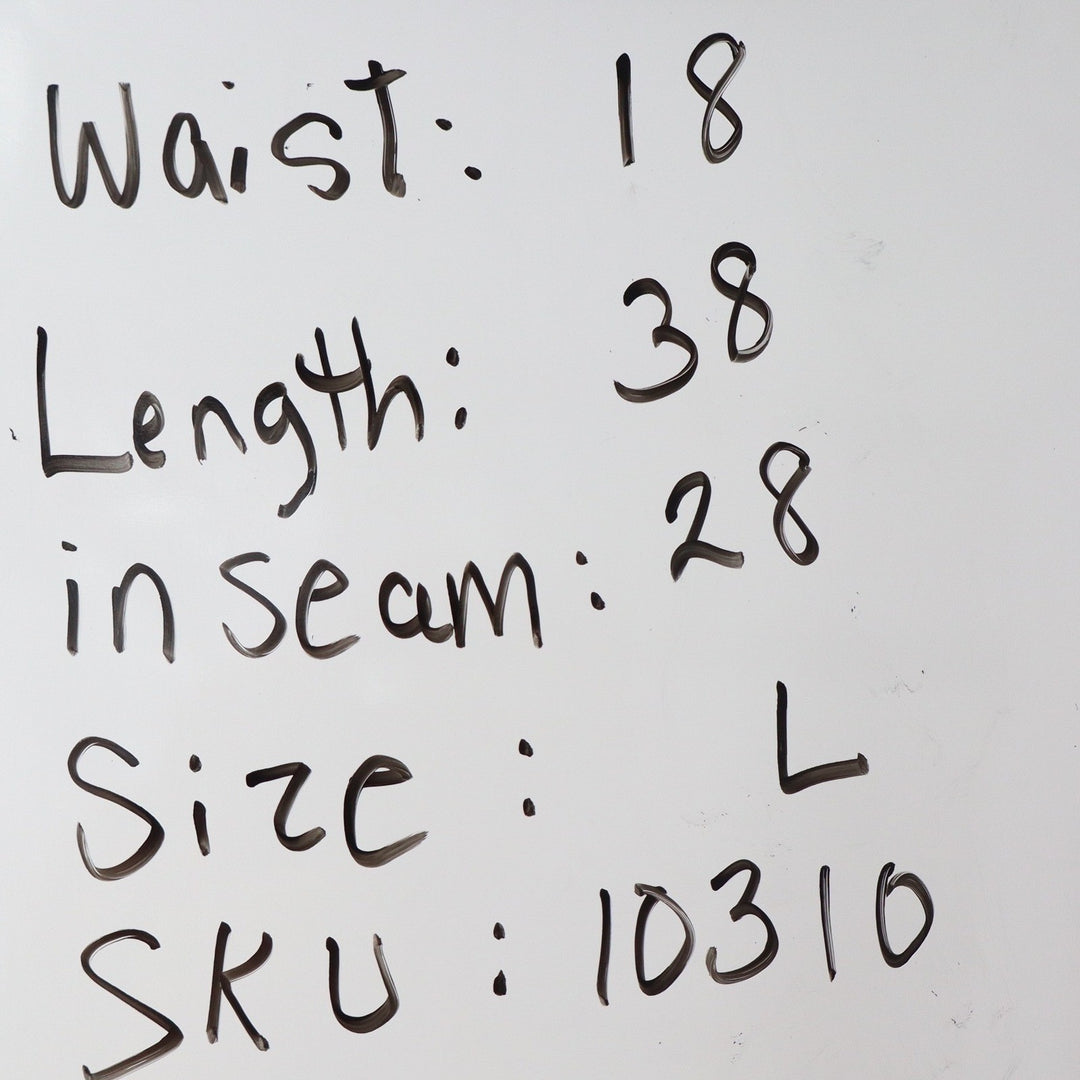 Waist: 18
Length: 38
inseam: 28
Size : L
SKU : 10310